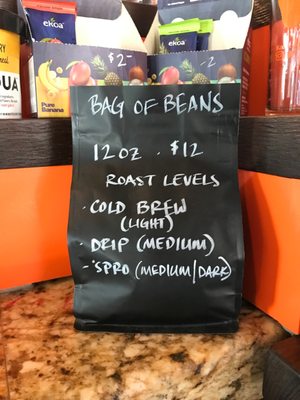 ekoa
ekoa
$2-
2-
Pure
Banana
UA
BAG OF BEANS
12oz · $12
ROAST LEVELS
· COLD BREW
(LIGHT)
· DRIP (MEDIUM)
- 'SPRO (MEDIUM/DARK)